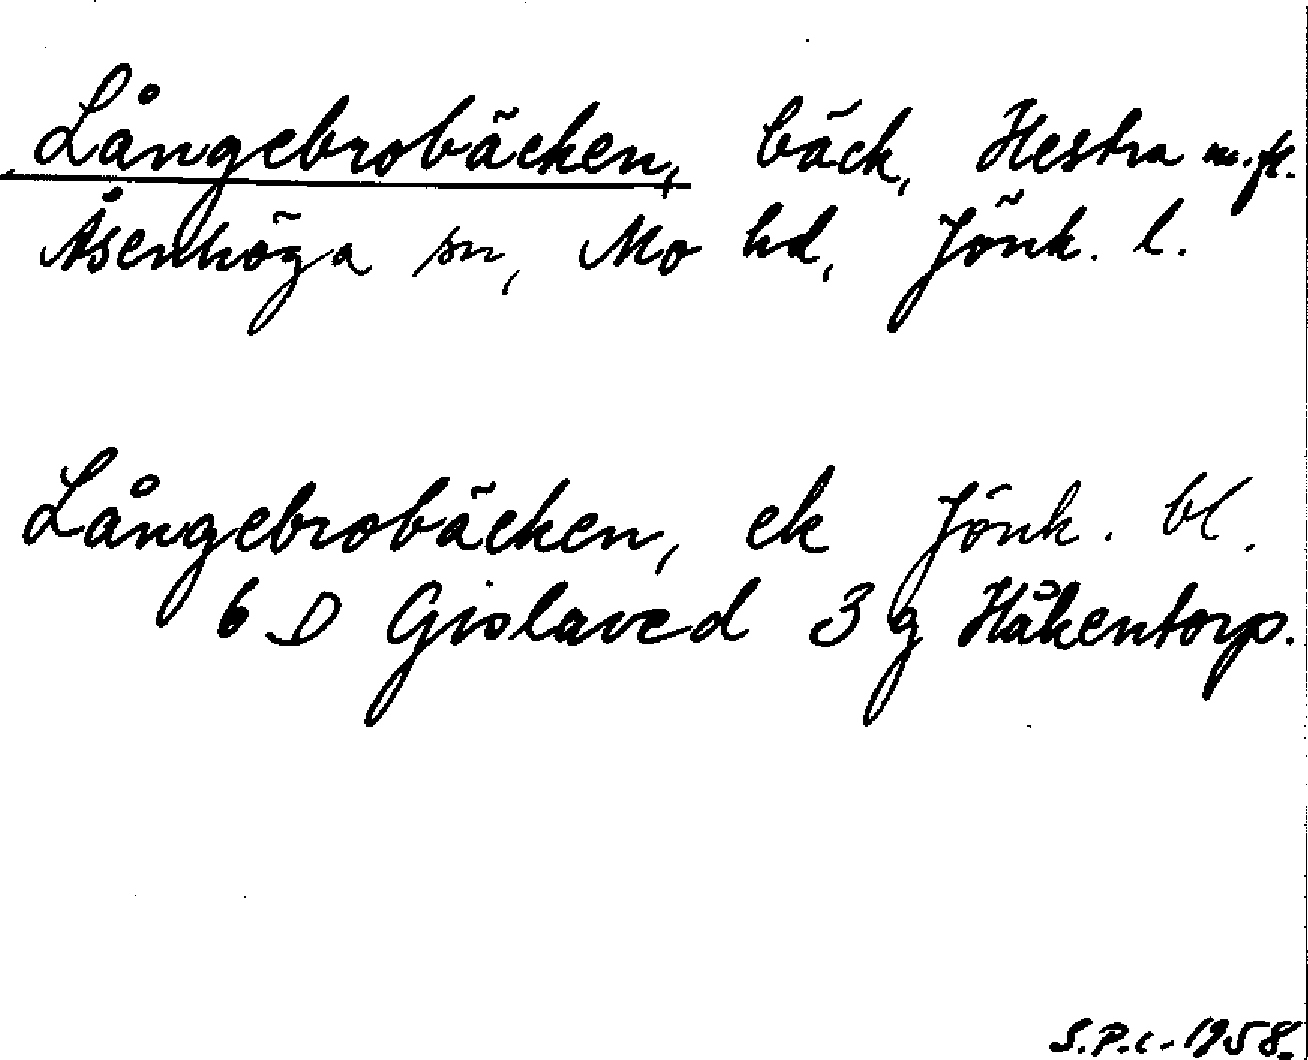 Långebrobäcken, bäck, Hestra m.fl.
Åsenhöga sn, Mo hd, Jönk. l.
Långebrobäcken, ek Jönk. bl.
6 D Gislaved 3 g Håkentorp.
S.P.c. 1958.